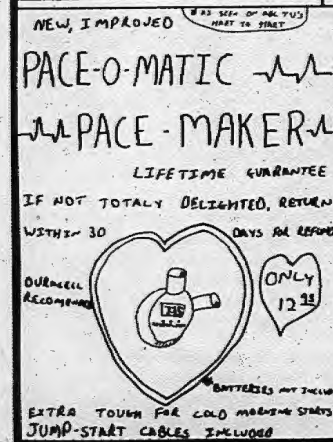 NEW, IMPROVED
AS SEEN ON ABC TV'S
HART TO HART
PACE-O-MATIC
PACE-MAKER
LIFETIME GUARANTEE
IF NOT TOTALY DELIGHTED, RETURN
WITHIN 30 DAYS FOR REFUND
DURACELL
RECOMENDED
ONLY
12
BATTERIES NOT
EXTRA TOUGH FOR COLD MORNING STARTS
JUMP-START CABLES INCLUDED